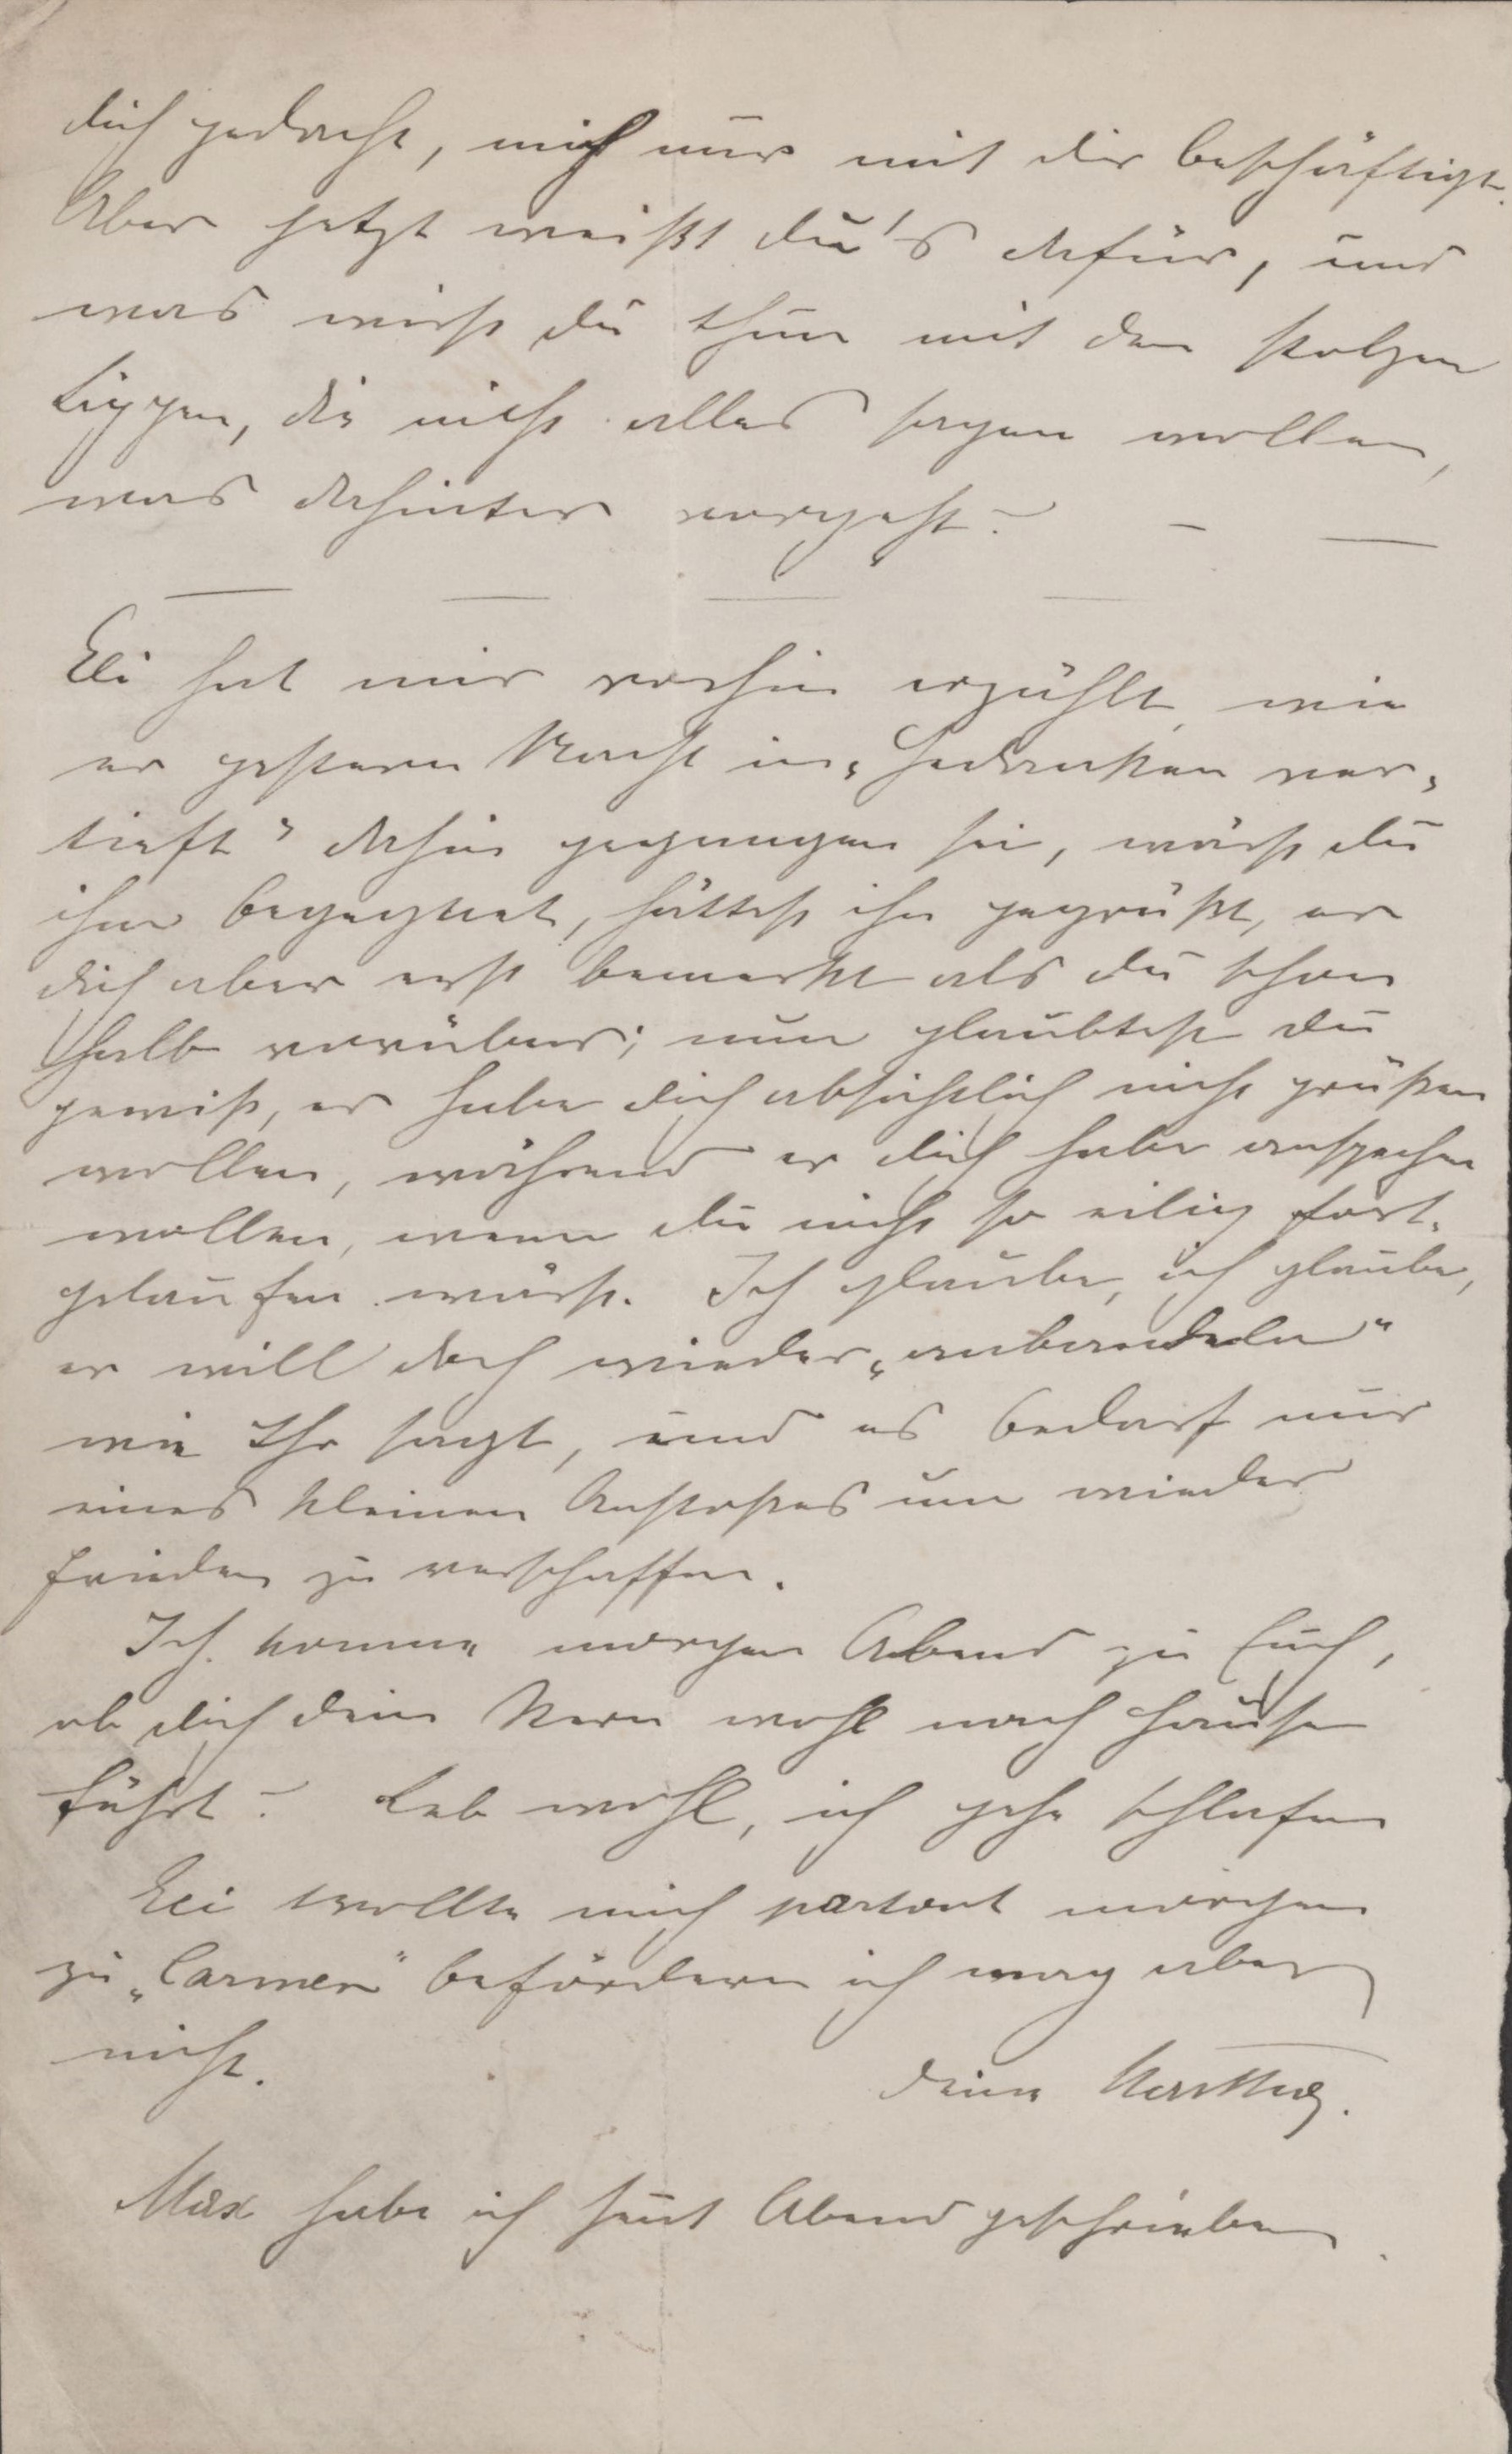 dich gedacht, mich nur mit dir beschäftigt.
Aber jetzt weißt du's dafür, und
was wirst du thun mit den stolzen
Lippen, die nicht alles sagen wollen,
was dahinter vorgeht? – –
– – – –
Eli hat mir vorhin erzählt, wie
er gestern Nacht in „Gedanken ver-
tieft" dahin gegangen sei, wärst du
ihm begegnet, hättest ihn gegrüßt, er
dich aber erst bemerkt als du schon
halb vorüber; nun glaubtest du
gewiß, er habe dich absichtlich nicht grüßen
wollen, während er dich habe ansprechen
wollen, wenn du nicht so eilig fort-
gelaufen wärst. Ich glaube, ich glaube,
er will doch wieder „anbandeln"
wie Ihr sagt, und es bedarf nur
eines kleinen Anstoßes um wieder
Frieden zu verschaffen.
Ich komme morgen Abend zu Euch,
ob dich dein Kern wohl nach Hause
führt? Leb wohl, ich gehe schlafen
Eli wollte mich partout morgen
zu „Carmen" befördern ich mag aber
nicht.
deine
Max habe ich heut Abend geschrieben.